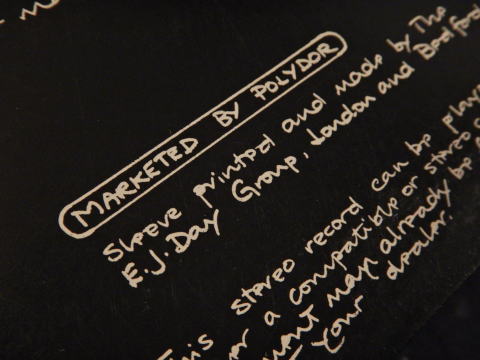 MARKETED BY POLYDOR
Sleeve printed and made by The
E.J. Day Group, London and Bedford
This stereo record can be
a compatible or stereo
may already be
your dealer.